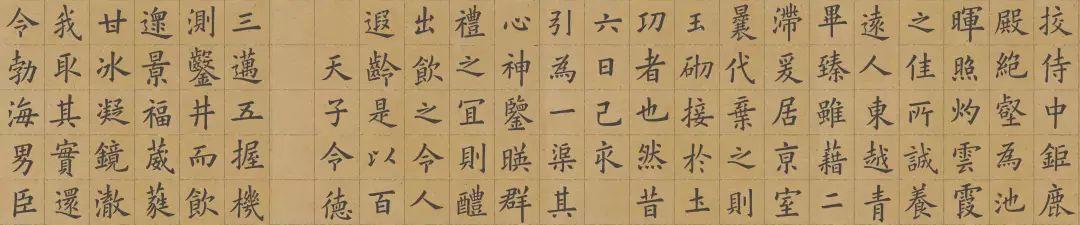 挍侍中鉅鹿
殿絶壑為池
暉照灼雲霞
之佳所誠養
遠人東越青
畢臻雖藉二
滯爰居亰室
曩代棄之則
玉砌接於土
功者也然昔
六日己亥
引為一渠其
心神鑒暎群
禮之宜則醴
出飲之令人
遐齡是以百
天子令德
三邁五握機
測鑿井而飲
邀景福葳蕤
甘冰凝鏡澈
我取其實還
令勃海男臣